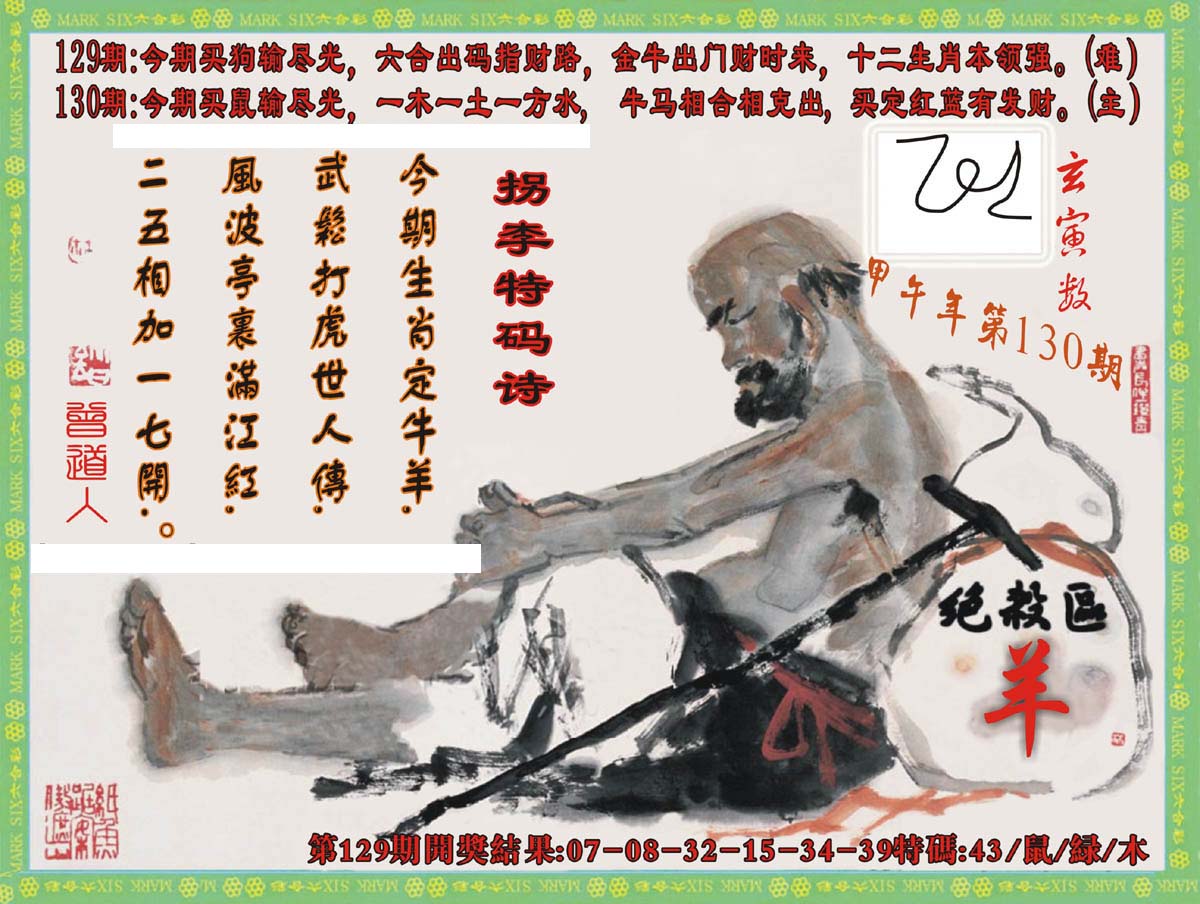 MARK SIX六合彩 MARK SIX六合彩 MARK SIX六合彩 MARK SIX六合彩 MARK SIX六合彩 MARK SIX六合彩 MARK SIX六合彩
129期:今期买狗输尽光，六合出码指财路，金牛出门财时来，十二生肖本领强。(难)
130期:今期买鼠输尽光，一木一土一方水，牛马相合相克出，买定红蓝有发财。(主)
玄寅数
甲午年第130期
拐李特码诗
今期生肖定牛羊.
武鬆打虎世人傳.
風波亭裏滿江紅.
二五相加一七開.。
曾道人
绝殺區
羊
第129期開獎結果:07-08-32-15-34-39特碼:43/鼠/緑/木